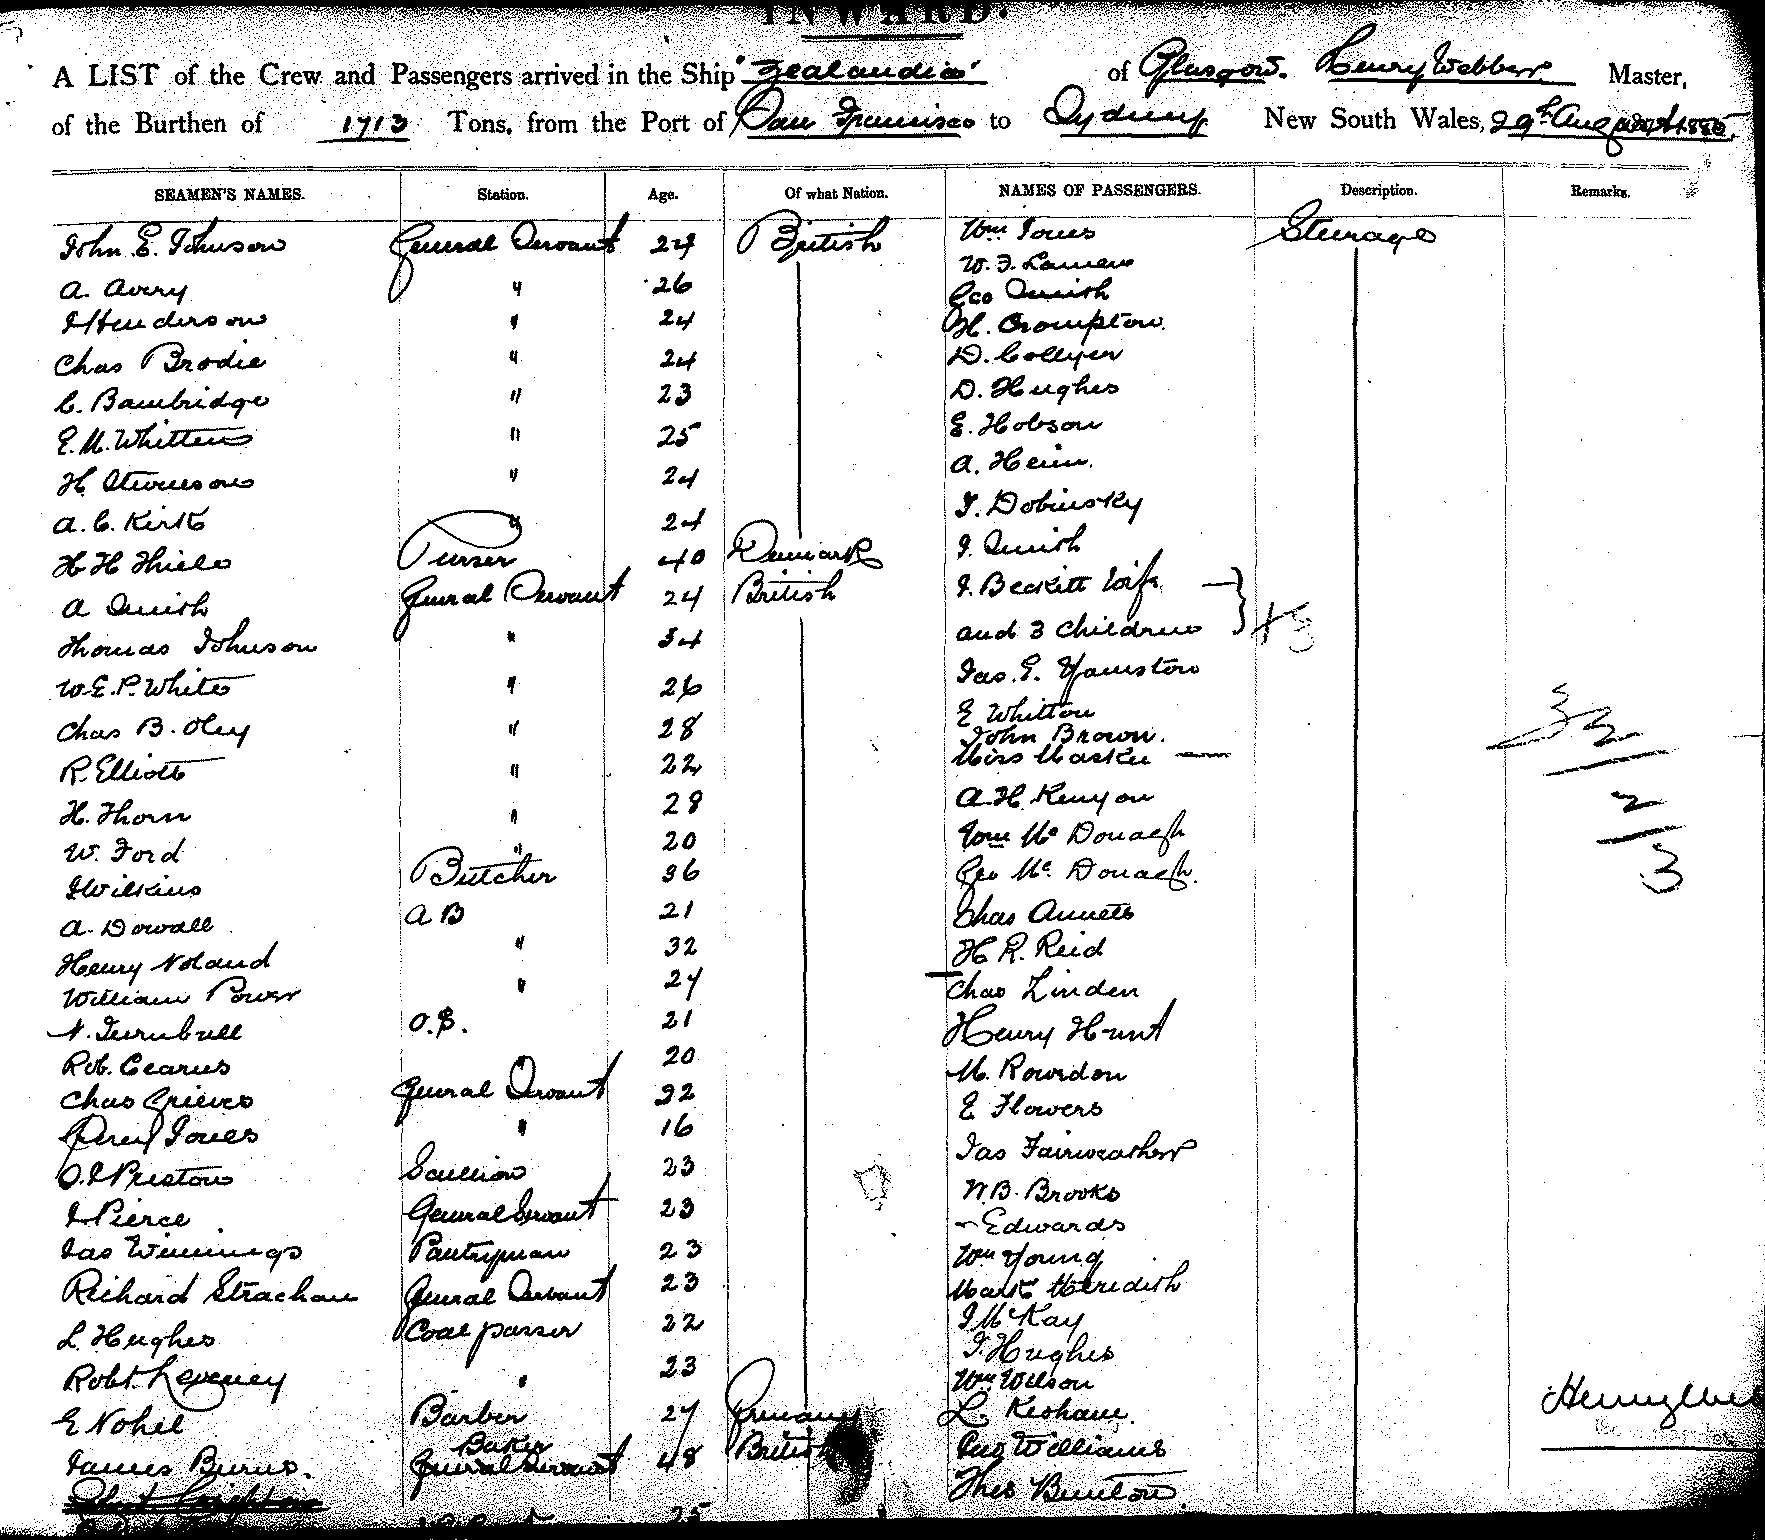 INWARD.
A LIST of the Crew and Passengers arrived in the Ship "Zealandia" of Glasgow. Henry Webber Master,
of the Burthen of 1713 Tons, from the Port of San Francisco to Sydney New South Wales, 29th August 188
SEAMEN'S NAMES. Station. Age. Of what Nation. NAMES OF PASSENGERS. Description. Remarks.
John E. Johnson General Servant 24 British Wm Jones Steerage
A. Avery " 26 W. J. Lamen
J Henderson " 24 Geo Smith
Chas Brodie " 24 H. Crompton.
C. Bambridge " 23 D. Collyer
E. M. Whitten " 25 D. Hughes
H. Stevenson " 24 E. Hobson
A. C. Kirk " 24 A. Heim.
H H Thiele Purser 40 Denmark J. Dobinsky
A Smith General Servant 24 British J. Smith
Thomas Johnson " 34 J. Beckett Wife
W. E. P. White " 26 and 3 Children
Chas B. Oley " 28 Jas. E.
R. Elliott " 22 E Whitton
H. Thorn " 28 John Brown.
W. Ford " 20 Miss
J Wilkins Butcher 36 A. H. Kenyon
A. Dowall A B 21 Wm Mc Donagh
Henry Noland " 32 Geo Mc Donagh.
William Power " 27 Chas Annett
N. Turnbull O.S. 21 H R. Reid
Rob. Cearns " 20 Chas Linden
Chas Grieves General Servant 22 Henry Hunt
Jones " 16 M. Rowden
O. J Preston Scullion 23 E Flowers
J Pierce General Servant 23 Jas Fairweather
Jas Winnings Pantryman 23 W. B. Brooks
Richard Strachan General Servant 23 - Edwards
L. Hughes Coal passer 22 Wm Young
Robt. Leveney " 23 Mark Meredith
E Nohel Barber 27 Germany J McKay
James Burns. Baker General Servant 48 British J. Hughes
Wm Wilson
L. Keohane.
Williams
Thos Bunton.
32
2
3
25